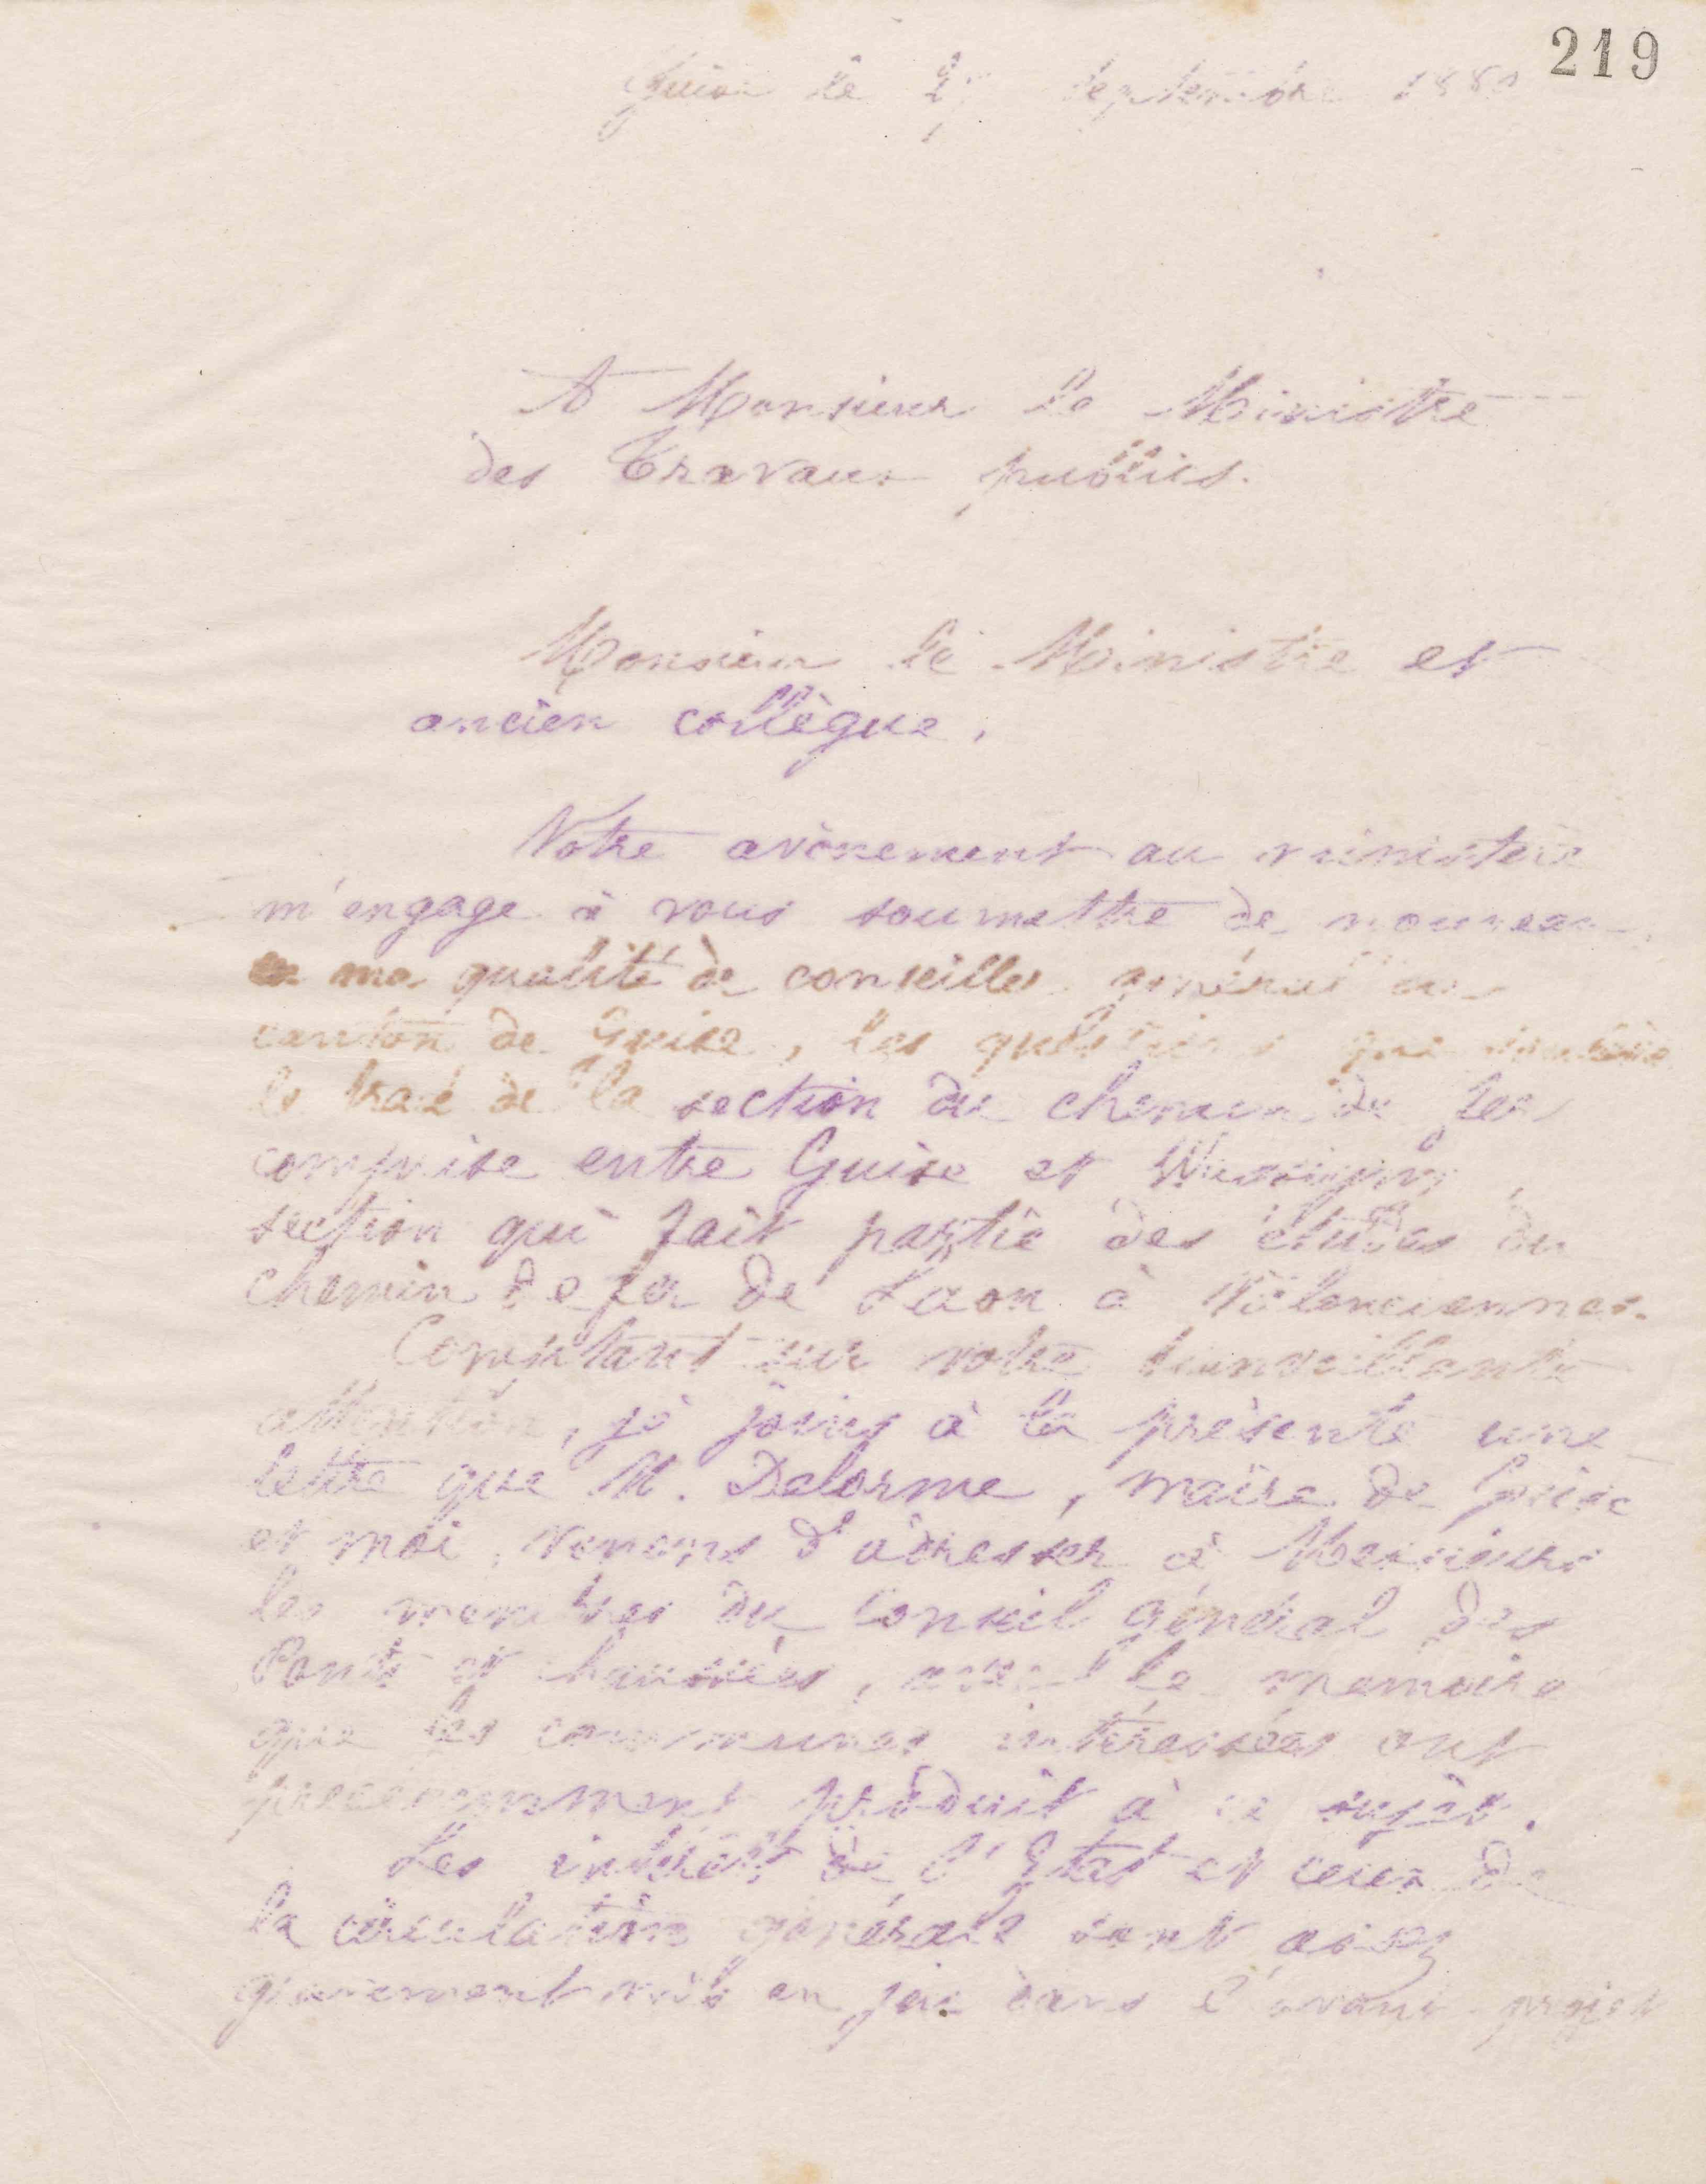 219
Guise le 27 septembre 1880
A Monsieur le Ministre
des Travaux publics.
Monsieur le Ministre et
ancien collègue,
Votre avènement au ministère
m'engage à vous soumettre de nouveau
en ma qualité de conseiller général du
canton de Guise, les questions que soulève
le tracé de la section du chemin de fer
comprise entre Guise et Wassigny,
section qui fait partie des études du
chemin de fer de Laon à Valenciennes.
Comptant sur votre bienveillante
attention, je joins à la présente une
lettre que M. Delorme, maire de Guise
et moi, venons d'adresser à Messieurs
les membres du Conseil général des
Ponts et chaussées, avec le memoire
que les communes intéressées ont
precédemment produit à ce sujet.
Les intérêts de l'Etat et ceux de
la circulation générale sont assez
gravement mis en jeu dans l'avant-projet